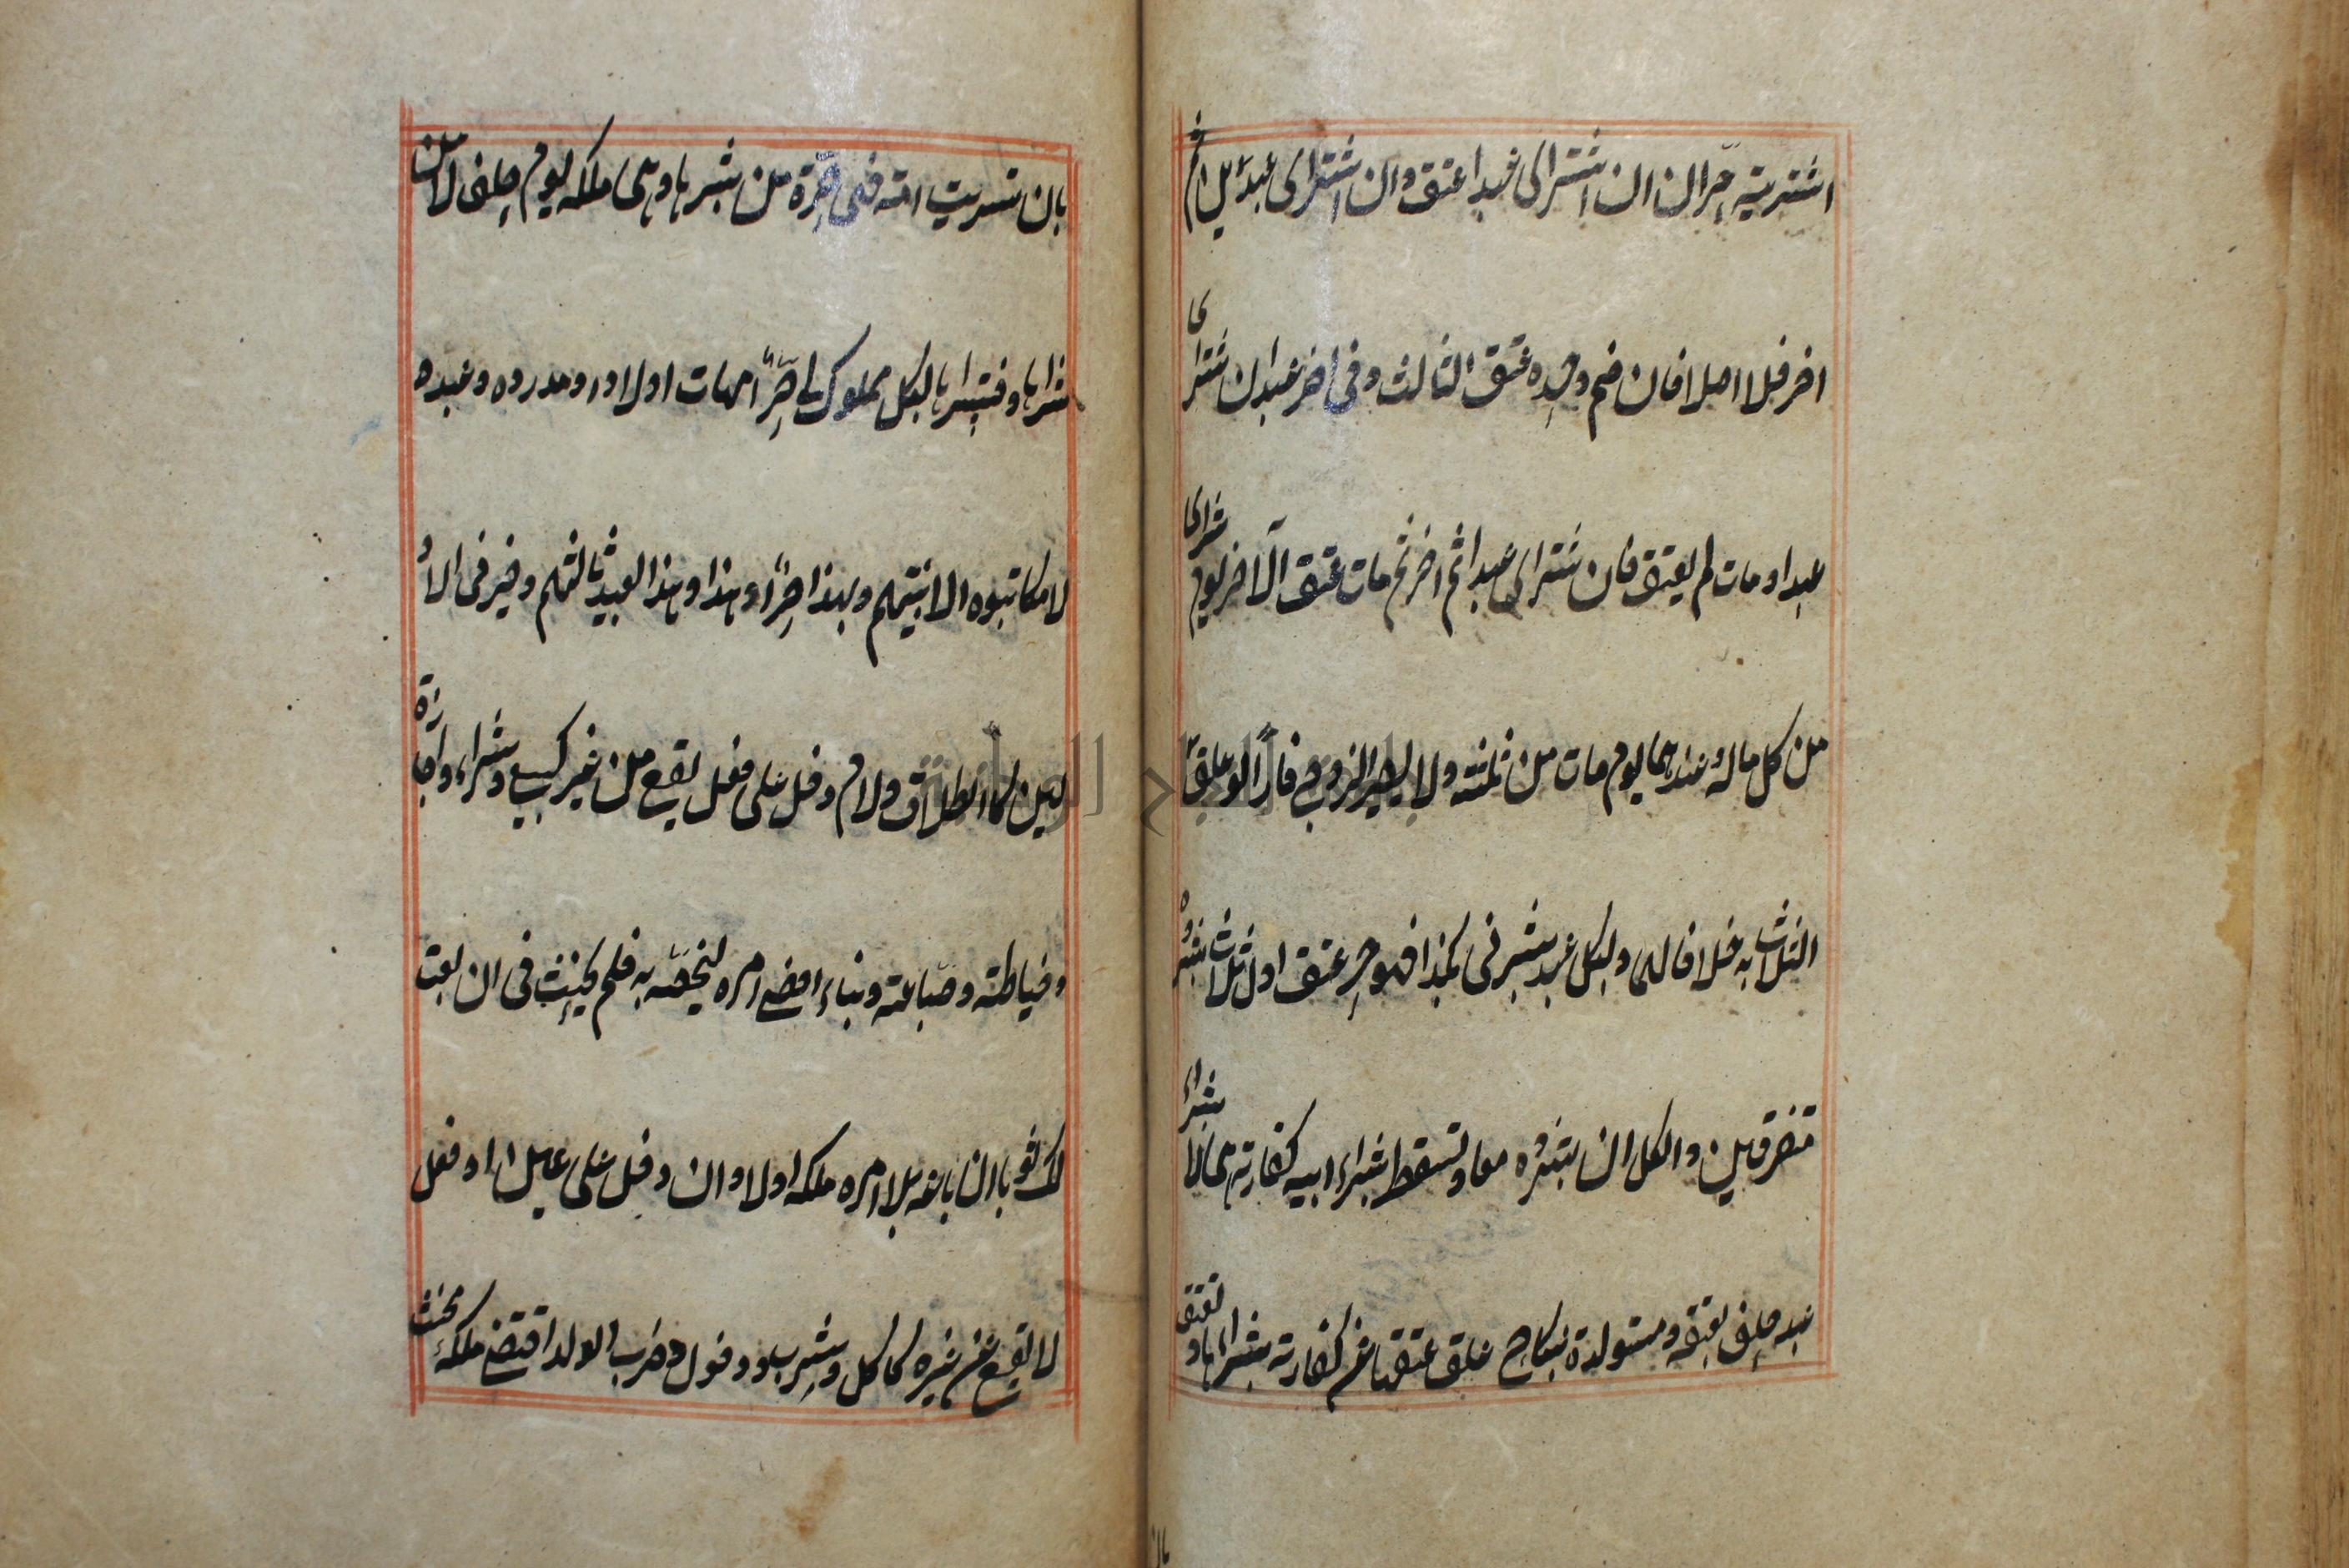 اشتريته حر ان اشترى عبدا عتق وان اشترى عبدين ثم
اخر فلا اصلا فان ضم وحده عتق الثالث وفى اخر عبد ان شترى
عبدا ومات لم يعتق فان شترى عبدا ثم اخر ثم مات عتق الآخر يوم شرائ
من كل ماله وعندهما يوم مات من ثلثه ولا يصير الزوج فارا لو علق
الثلاث به خلافا لهما وبكل عبد بشرنى بكذا فهو حر عتق اول ثلاثة بشروه
متفرقين والكل ان بشروه معا وتسقط بشراء ابيه كفارته هى لا بشراء
عبد حلف بعتقه ومستولدة بنكاح علق عتقها عن كفارته بشرائها وتعتق
بان تسريت امة فهى حرة من بشرها وهى ملكه يوم حلف لا من
شراها وفتسراها بكل مملوك لى حر امهات اولاده ومدبروه وعبيده
لا مكاتبوه الا بنيتهم وبهذا حر او هذا وهذا لعبيد ثالثهم وخير فى الاو
لين كالطلاق ولام دخل على فعل يقع من غير كبيع وشراء واجارة
وخياطة وصباغة وبناء اقتضى امره ليخصه به فلم يحنث فى ان بعت
لك ثوبا ان باعه بلا امره ملكه اولا وان دخل على عين او فعل
لا يقع عن غيره كاكل وشرب ودخول وضرب الولد اقتضى ملكه فحنث